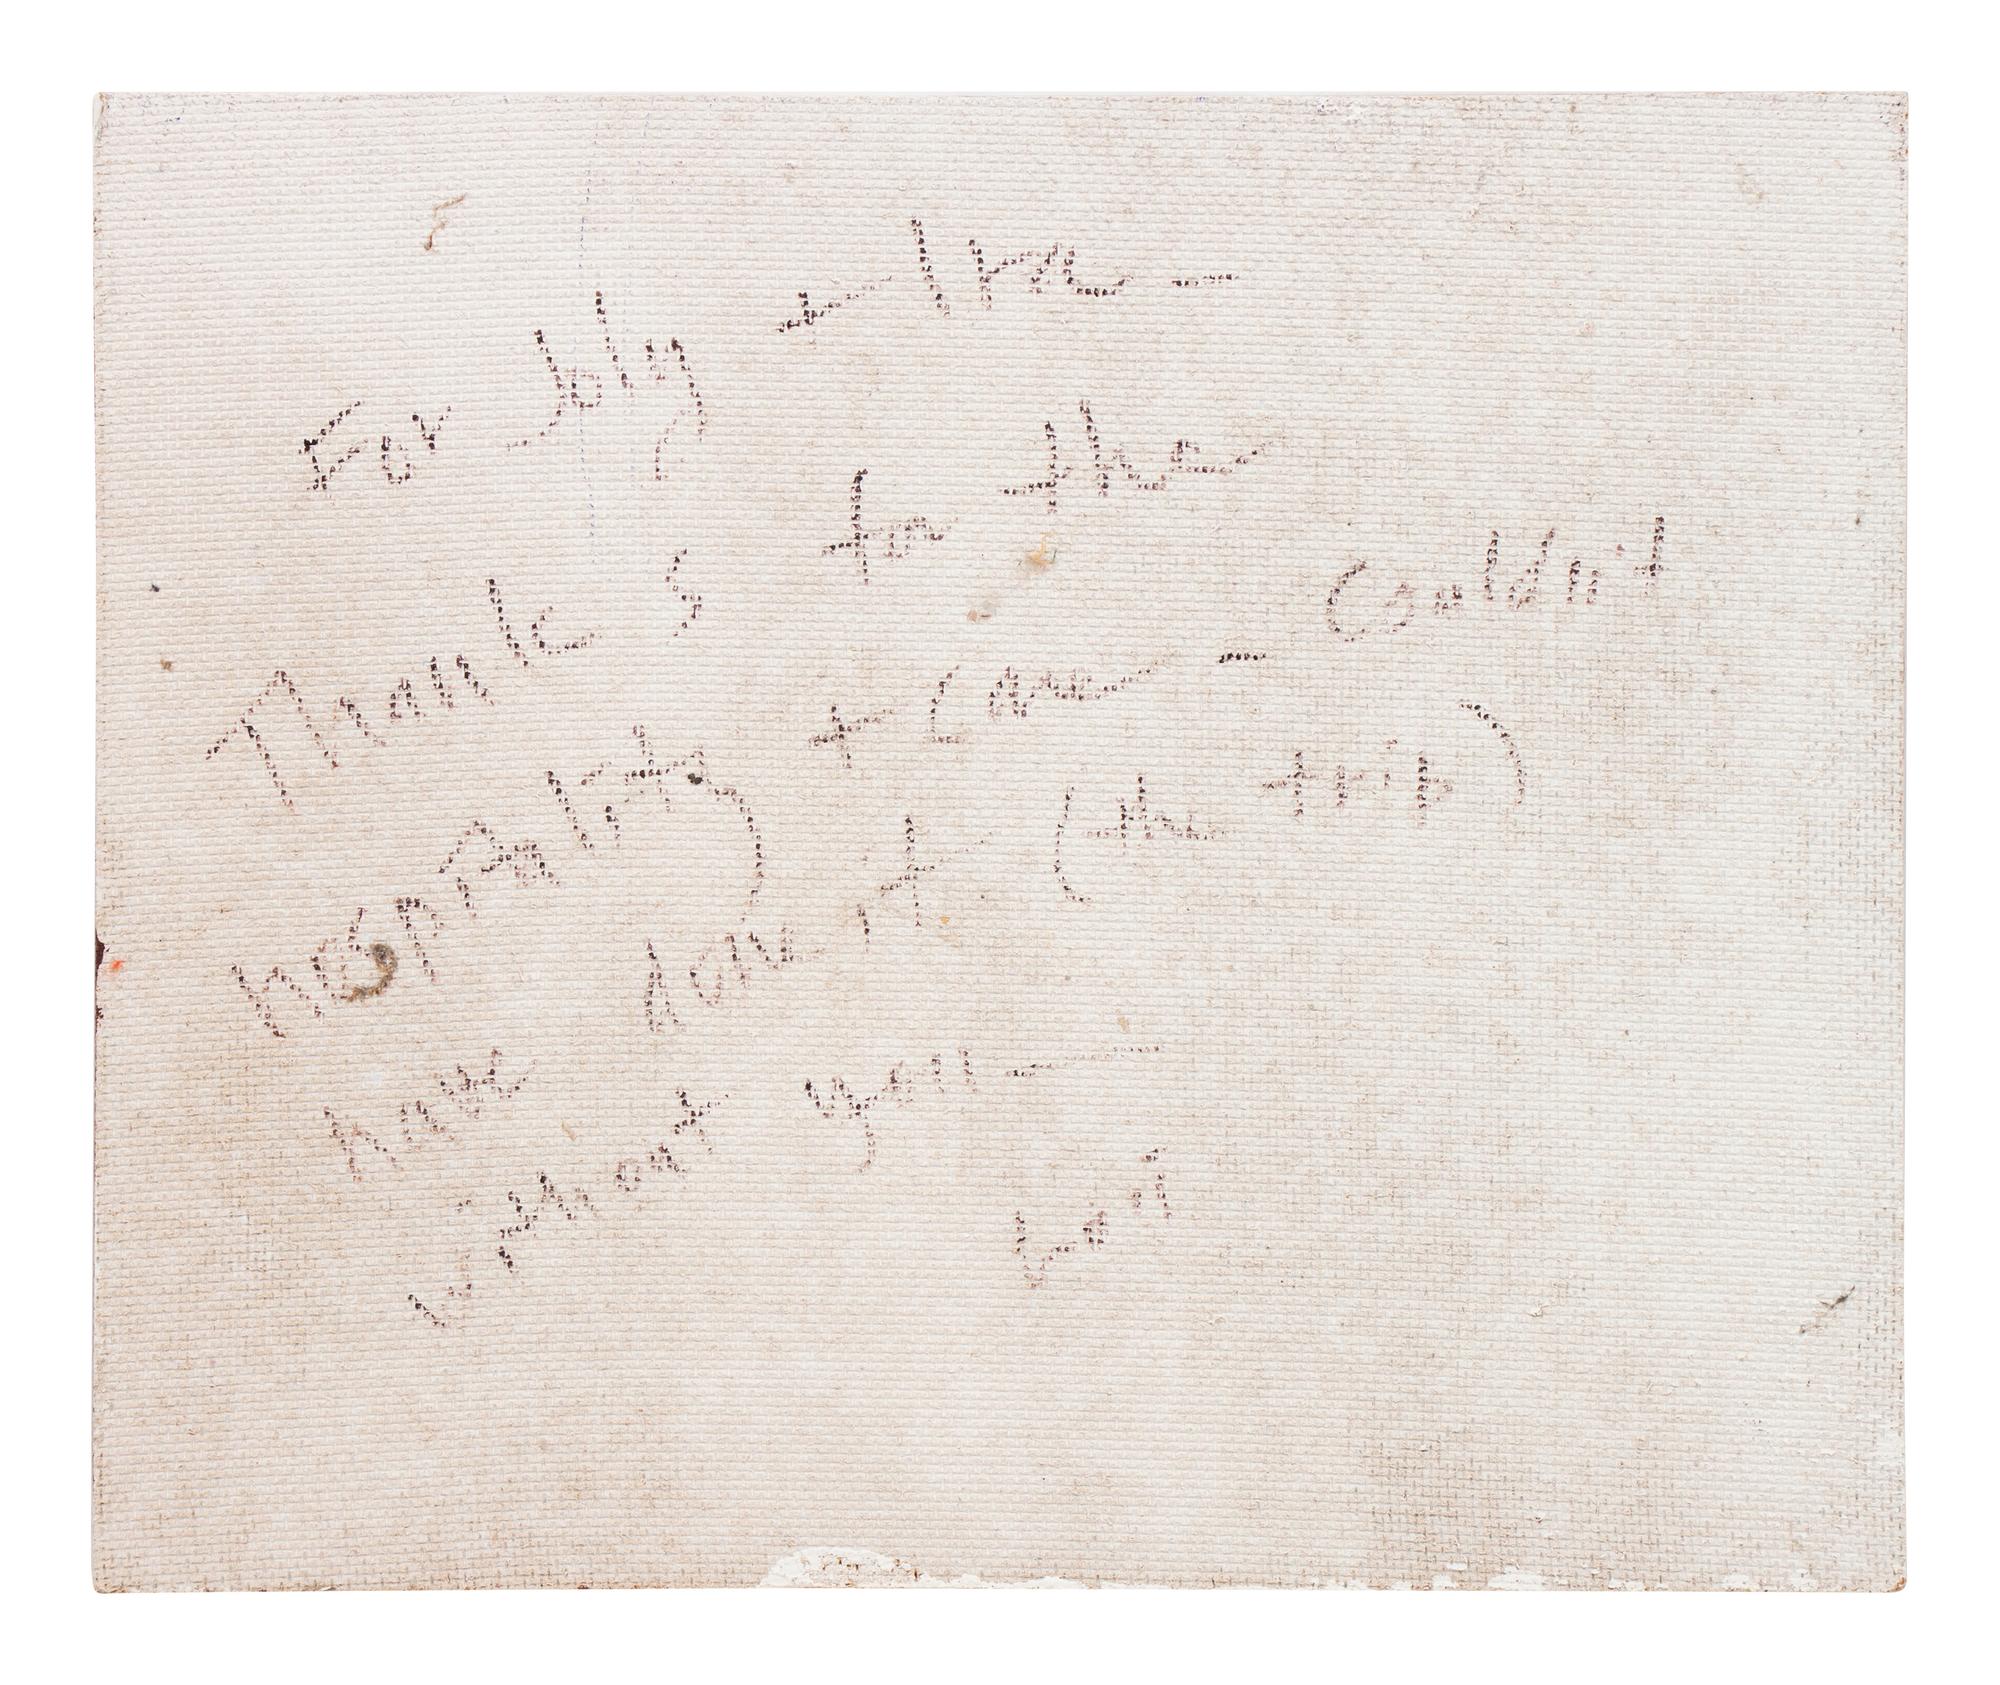 For John + Ara –
Thanks for the
hospality + Care – Couldn't
have done it (the trip)
without you –
Van